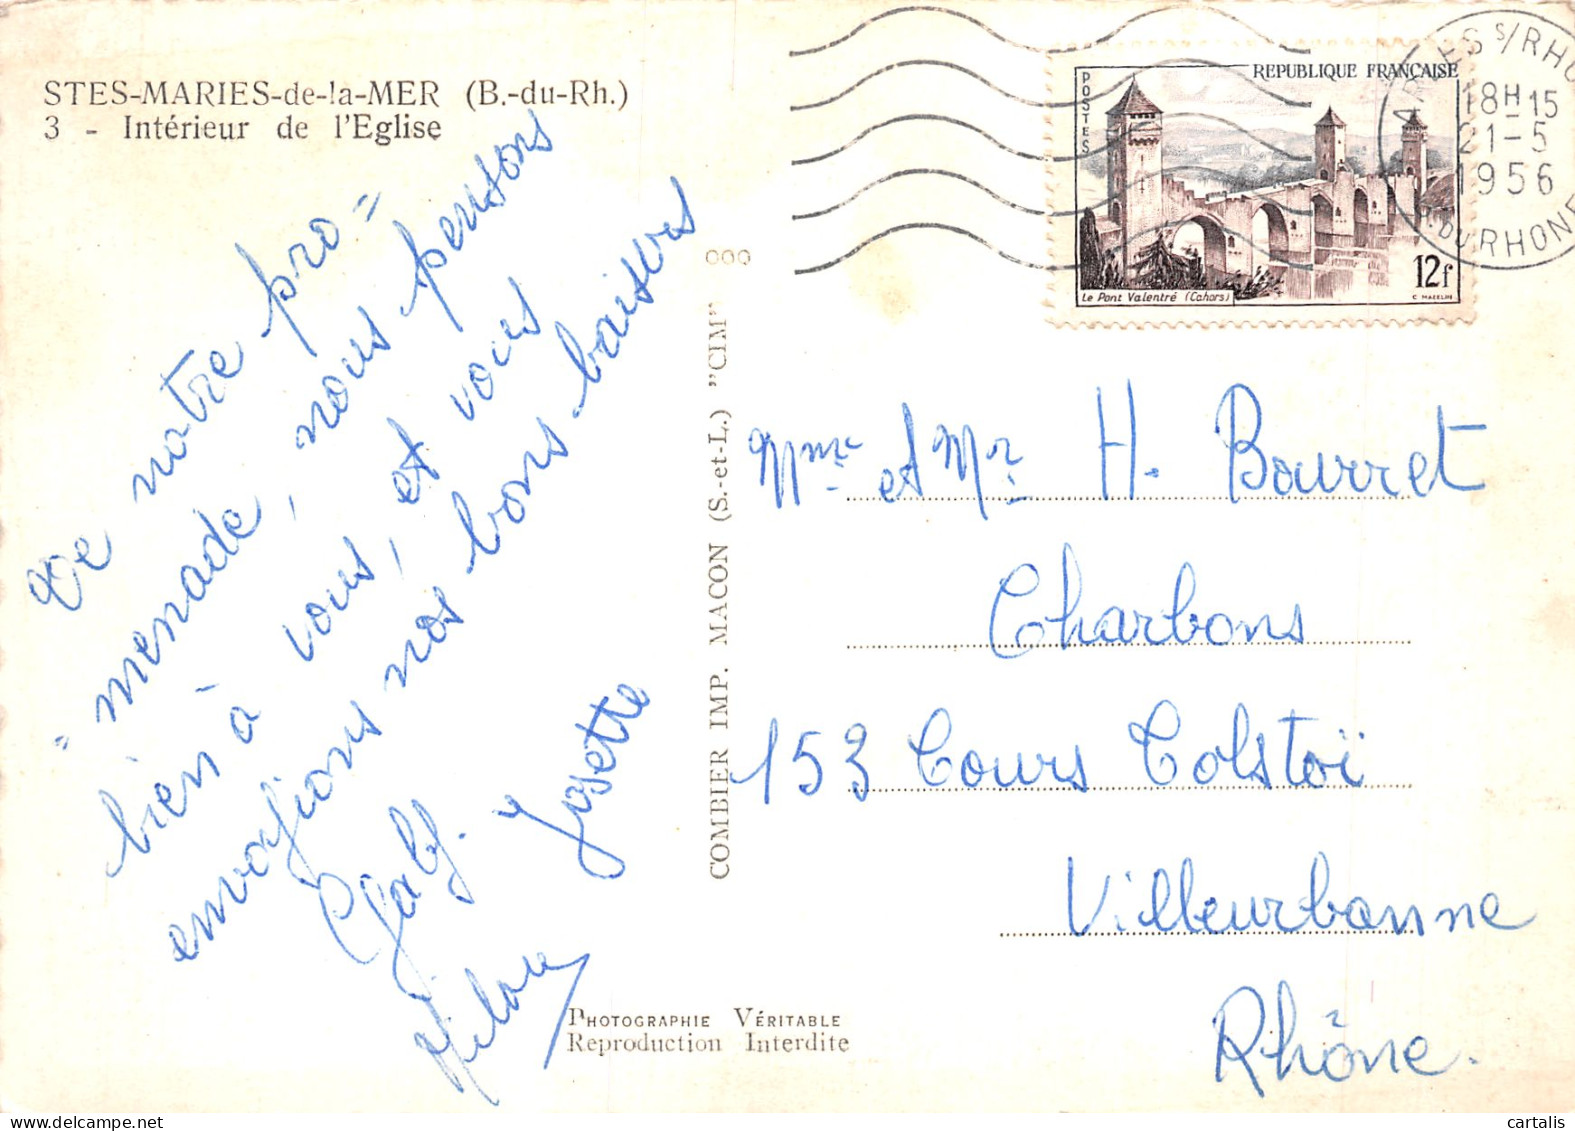 STES-MARIES-de-la-MER (B.-du-Rh.)
3 - Intérieur de l'Eglise
De notre pro=
=menade, nous pensons
bien à vous, et vous
envoyions nos bons baisers
Josette
COMBIER IMP. MACON (S.-et-L.) "CIM"
PHOTOGRAPHIE VÉRITABLE
Reproduction Interdite
REPUBLIQUE FRANÇAISE
POSTES
Le Pont Valentré (Cahors)
12f
C. MAZELIN
ARLES S/RHONE
18H-15
21-5
1956
B. DU RHONE
Mme et Mr H. Bourret
Charbons
153 Cours Tolstoï
Villeurbanne
Rhône.
cartalis